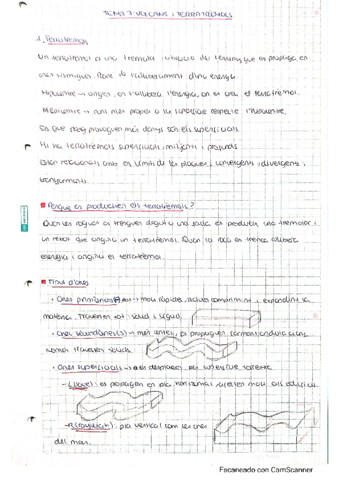 TEMA 7: VOLCANS I TERRATRÈMOLS
1. Terratrèmols
Un terratrèmol és una tremolor i vibració del terreny que es propaga en
ones sísmiques. Prové de l'alliberament d'una energia.
Hipocentre → origen, on s'allibera l'energia, on es crea el terratrèmol.
Epicentre → punt més proper a la superfície respecte l'hipocentre.
Els que més danys són els superficials.
Hi ha terratrèmols superficials, mitjans i profunds
Estan relacionats amb els límits de les plaques: convergents, divergents i
transformants.
Perquè es produeixen els terratrèmols?
Quan les roques es trenquen degut a una falla es produeix una tremolor i
un rebot que origina un terratrèmol. Quan la roca es trenca allibera
energia i origina el terratrèmol.
Tipus d'ones
• Ones primàries (P) → molt ràpides, actuen comprimint i expandint la
matèria. Travessen sòlid i líquid.
• Ones secundàries (S) → més lentes, es propaguen formant ondulacions
només travessen sòlids.
• Ones superficials → es desplacen per superfície terrestre
L (Love): es propaguen en pla horitzontal
R (Rayleigh): pla vertical com les ones
del mar.
Escaneado con CamScanner